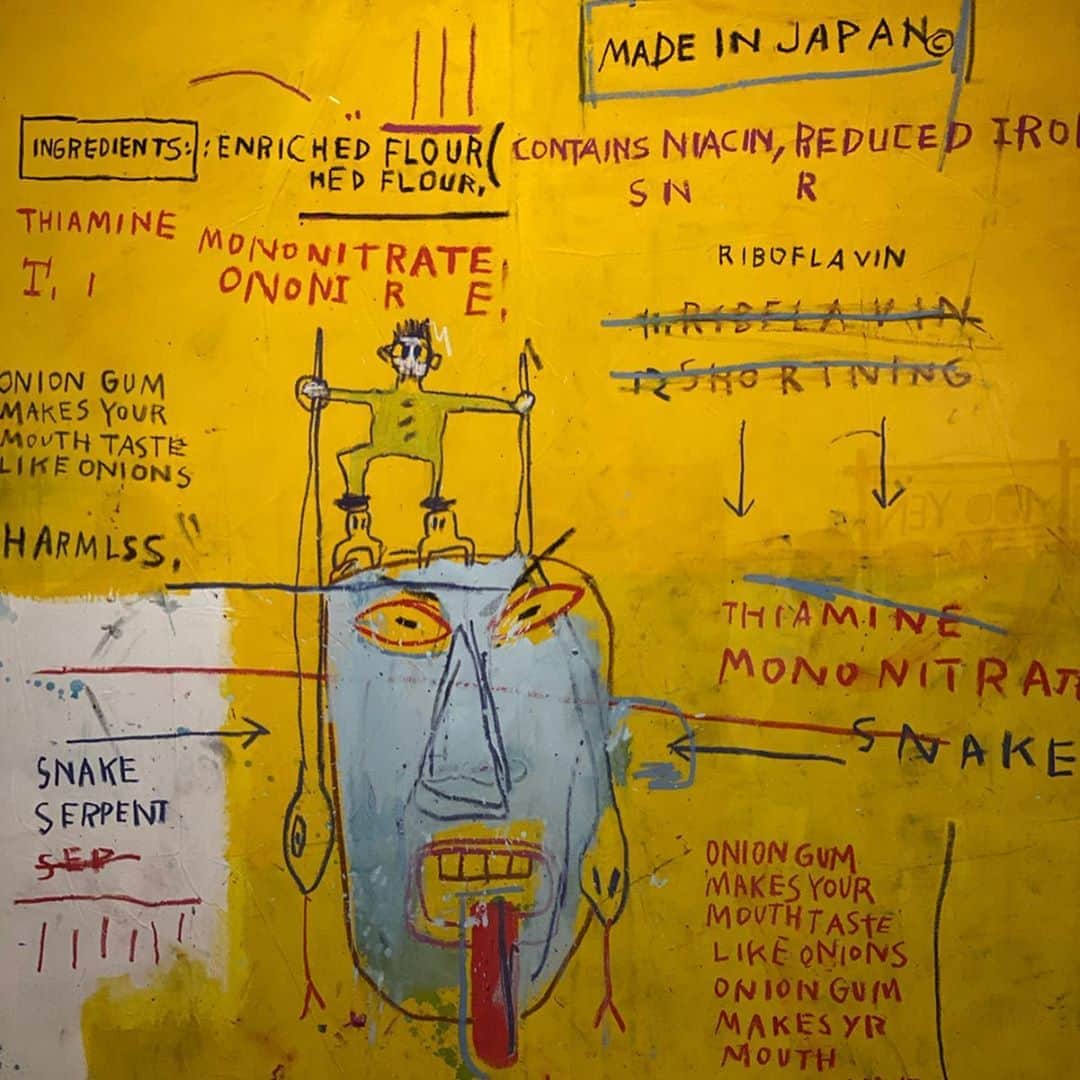 MADE IN JAPAN©
INGREDIENTS: : ENRICHED FLOUR ( CONTAINS NIACIN, REDUCED IRO
HED FLOUR,
S N R
THIAMINE MONONITRATE,
T, I ONONI R E,
RIBOFLAVIN
11. RIBFLAVIN
12 SHORTNING
ONION GUM
MAKES YOUR
MOUTH TASTE
LIKE ONIONS
HARMLSS,"
THIAMINE
MONONITRAT
SNAKE
SNAKE
SERPENT
SEP
ONION GUM
MAKES YOUR
MOUTH TASTE
LIKE ONIONS
ONION GUM
MAKES YR
MOUTH